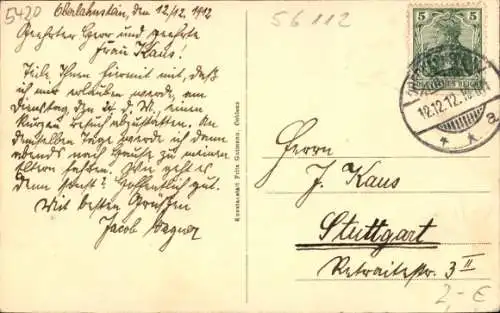 5420
Oberlahnstein, den 12/12. 1912
56112
Geehrter Herr und geehrte
Frau Kaus!
Teile Ihnen hiermit mit, daß
ich mir erlauben werde, am
Dienstag, den 24. d. M., einen
kurzen Besuch abzustatten. An
demselben Tage werde ich dann
abends nach Hause zu meinen
Eltern fahren. Wie geht es
denn sonst? Hoffentlich gut.
Mit besten Grüßen
Jacob Wagner
Kunstanstalt Fritz Gutmann, Coblenz
5
5
DEUTSCHES REICH
12.12.12.
* * a
Herrn
J. Kaus
Stuttgart
Retraitestr. 3 II
2,- €